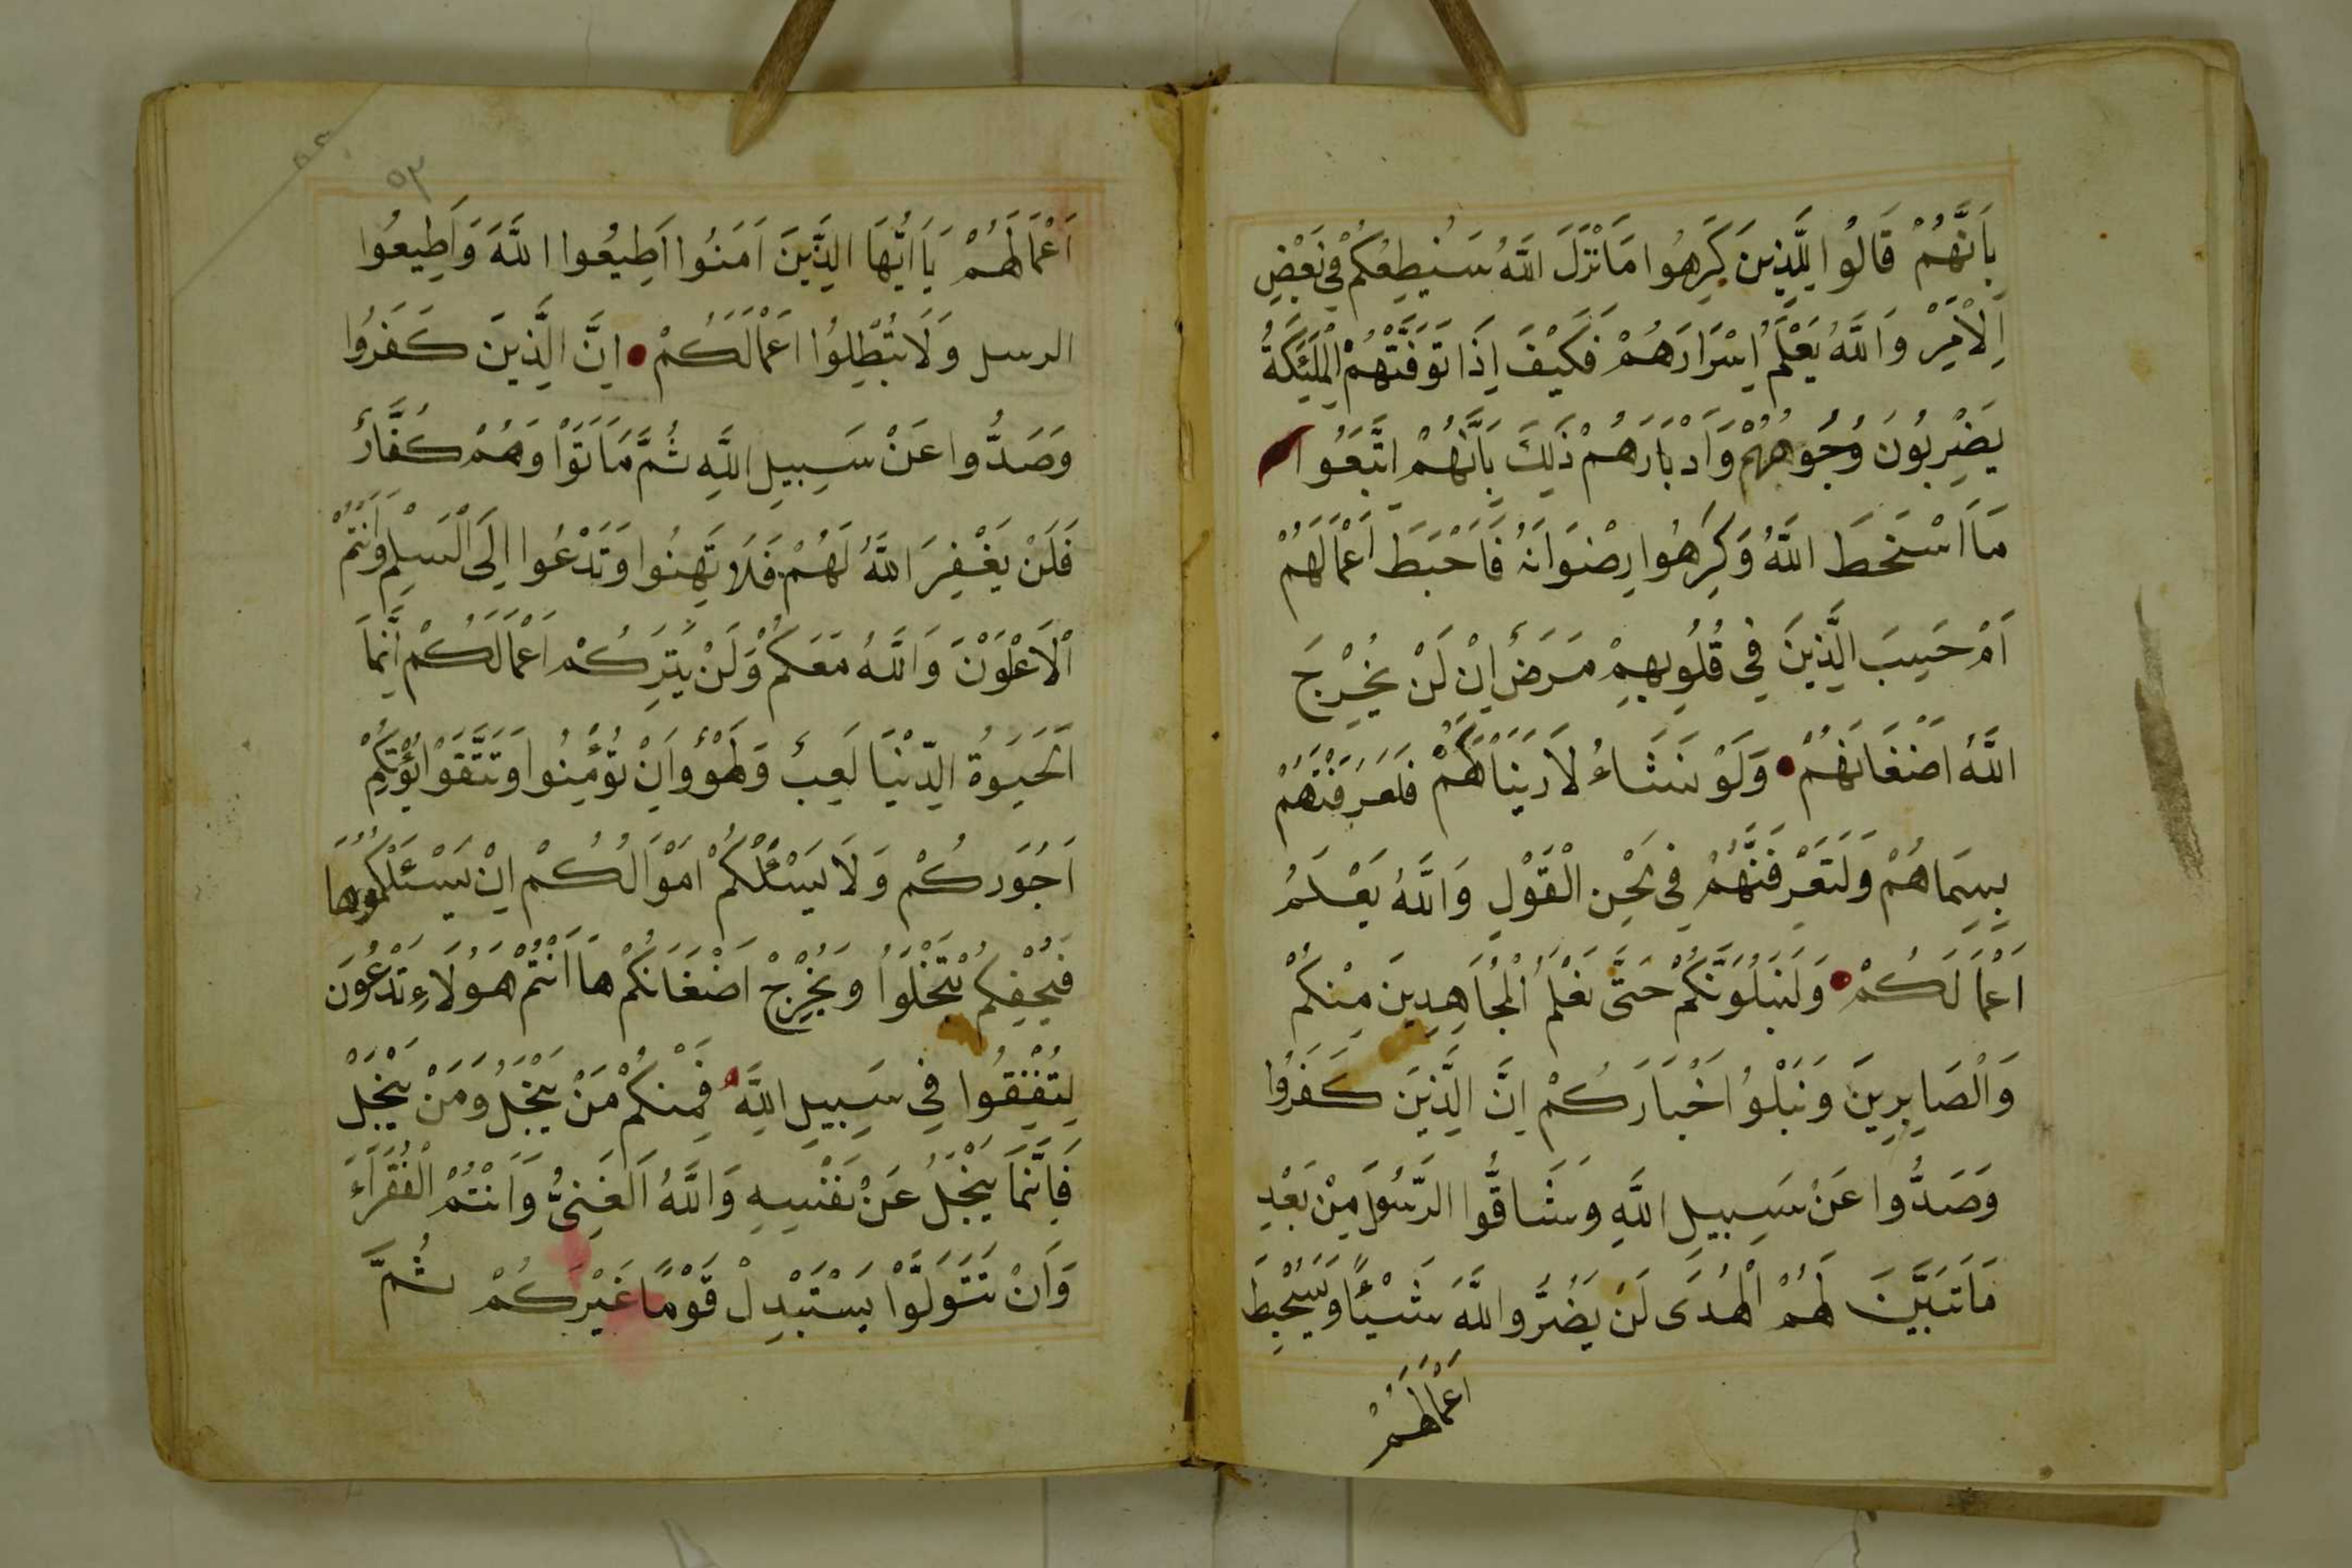 بِاَنَّهُمْ قَالُوا لِلَّذِينَ كَرِهُوا مَا نَزَّلَ اللَّهُ سَنُطِيعُكُمْ فِي بَعْضِ
اِلْاَمْرِ وَاللَّهُ يَعْلَمُ اِسْرَارَهُمْ فَكَيْفَ اِذَا تَوَفَّتْهُمْ الْمَلَئِكَةُ
يَضْرِبُونَ وُجُوهَهُمْ وَاَدْبَارَهُمْ ذَلِكَ بِاَنَّهُمُ اتَّبَعُوا
مَا اَسْخَطَ اللَّهَ وَكَرِهُوا رِضْوَانَهُ فَاَحْبَطَ اَعْمَالَهُمْ
اَمْ حَسِبَ الَّذِينَ فِي قُلُوبِهِمْ مَرَضٌ اِنْ لَنْ يُخْرِجَ
اللَّهُ اَضْغَانَهُمْ وَلَوْ نَشَاءُ لَاَرَيْنَاكَهُمْ فَلَعَرَفْتَهُمْ
بِسِيمَاهُمْ وَلَتَعْرِفَنَّهُمْ فِي لَحْنِ الْقَوْلِ وَاللَّهُ يَعْلَمُ
اَعْمَالَكُمْ وَلَنَبْلُوَنَّكُمْ حَتَّى نَعْلَمَ الْمُجَاهِدِينَ مِنْكُمْ
وَالْصَابِرِينَ وَنَبْلُوُ اَخْبَارَكُمْ اِنَّ الَّذِينَ كَفَرُوا
وَصَدُّوا عَنْ سَبِيلِ اللَّهِ وَشَاقُّوا الرَّسُولَ مِنْ بَعْدِ
مَا تَبَيَّنَ لَهُمُ الْهُدَى لَنْ يَضُرُّوا اللَّهَ شَيْئًا وَسَيُحْبِطُ
اَعْمَالَهُمْ
٥٣
اَعْمَالَهُمْ يَا اَيُّهَا الَّذِينَ اَمَنُوا اَطِيعُوا اللَّهَ وَاَطِيعُوا
الرسل وَلَا تُبْطِلُوُا اَعْمَالَكُمْ اِنَّ الَّذِينَ كَفَرُوا
وَصَدُّوا عَنْ سَبِيلِ اللَّهِ ثُمَّ مَاتَوْا وَهُمْ كُفَّارٌ
فَلَنْ يَغْفِرَ اللَّهُ لَهُمْ فَلَا تَهِنُوا وَتَدْعُوا اِلَى الْسَلْمِ وَاَنْتُمْ
اْلاَعْلَوْنَ وَاللَّهُ مَعَكُمْ وَلَنْ يَتِرَكُمْ اَعْمَالَكُمْ اِنَّمَا
اَلْحَيَوةُ الدُّنْيَا لَعِبٌ وَلَهْوٌ وَاِنْ تُؤْمِنُوا وَتَتَّقَوْا يُؤْتِكُمْ
اُجُورَكُمْ وَلَا يَسْئَلْكُمْ اَمْوَالُكُمْ اِنْ يَسْئَلْكُمُوهَا
فَيُحْفِكُمْ تَبْخَلُوا وَيُخْرِجْ اَضْغَانَكُمْ هَا اَنْتُمْ هَوُلَاءِ تُدْعَوْنَ
لِتُنْفِقُوا فِي سَبِيلِ اللَّهِ فَمِنْكُمْ مَنْ يَبْخَلُ وَمَنْ يَبْخَلْ
فَاِنَّمَا يَبْخَلُ عَنْ نَفْسِهِ وَاللَّهُ اَلْغَنِيُّ وَاَنْتُمُ الْفُقَرَاءُ
وَاِنْ تَتَوَلَّوْا يَسْتَبْدِلْ قَوْمًا غَيْرَكُمْ ثُمَّ